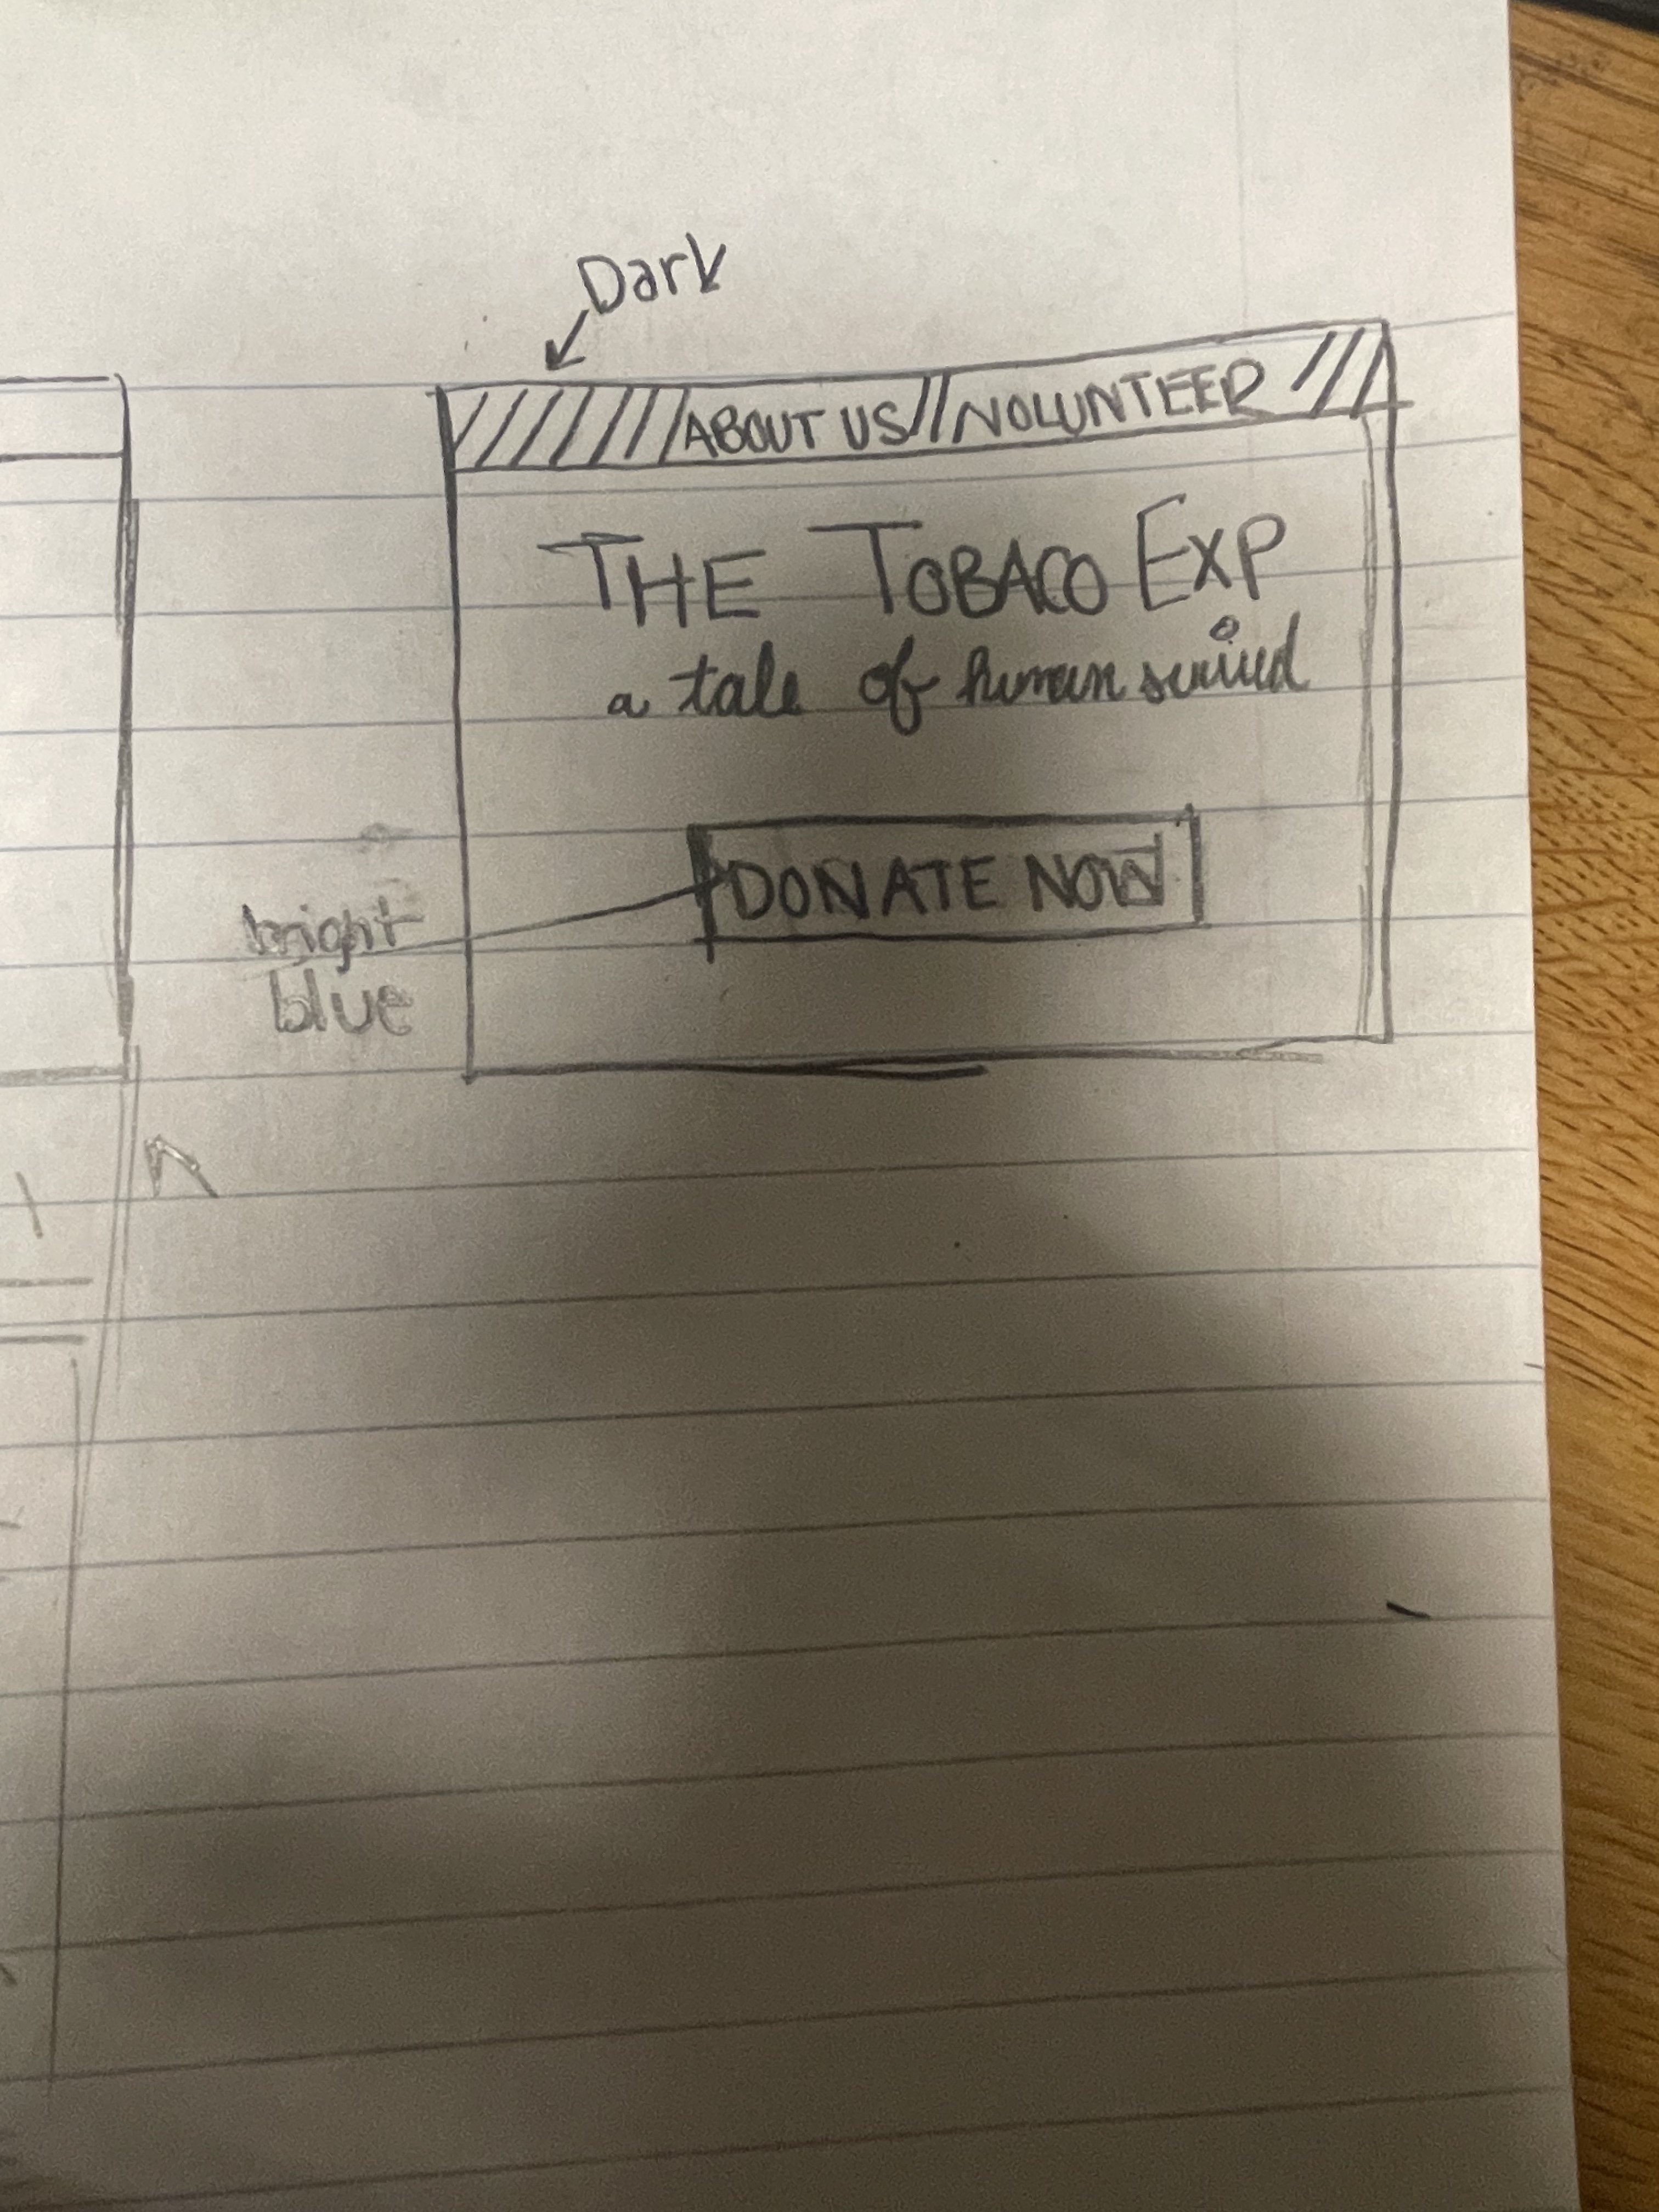 Dark
ABOUT US VOLUNTEER
THE TOBACO EXP
a tale of human
DONATE NOW
bright
blue